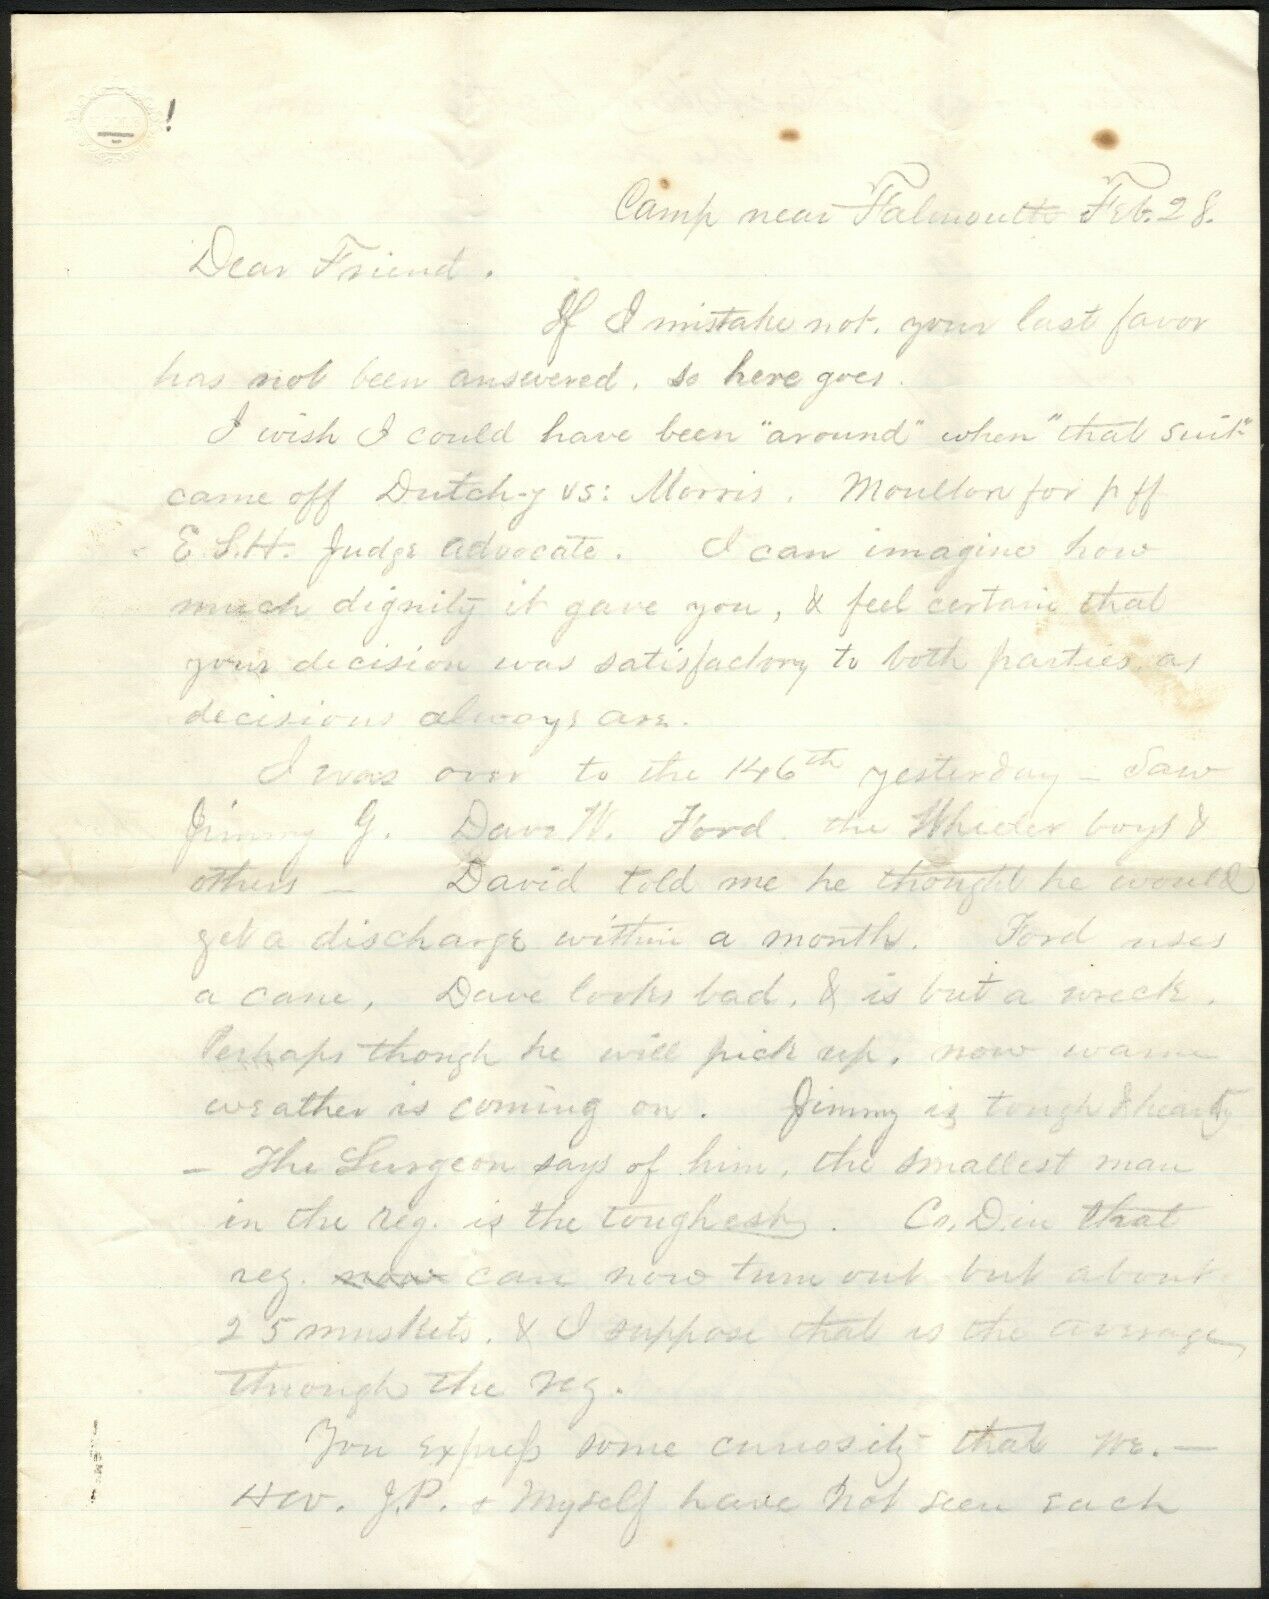 Camp near Falmouth Feb. 28.
Dear Friend.
If I mistake not, your last favor
has not been answered, so here goes.
I wish I could have been "around" when "that suit"
came off Dutch-y vs: Morris. Moulton for pff
E.S.H. Judge Advocate. I can imagine how
much dignity it gave you, & feel certain that
your decision was satisfactory to both parties, as
decisions always are.
I was over to the 146th yesterday – Saw
Jimmy G. Dave W. Ford. the Wheeler boys &
others – David told me he thought he would
get a discharge within a month. Ford uses
a cane, Dave looks bad, & is but a wreck.
Perhaps though he will pick up, now warm
weather is coming on. Jimmy is tough & hearty
– The Surgeon says of him, the smallest man
in the reg. is the toughest. Co. D. in that
reg. now can now turn out but about
25 muskets, & I suppose that is the average
through the reg.
You express some curiosity that we. –
J.P. & Myself have not seen each